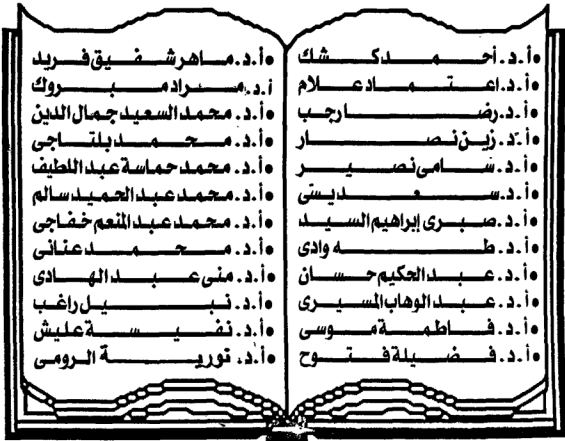 • أ.د. أحمد كشك
• أ.د. اعتماد علام
• أ.د. رضا رجب
• أ.د. زين نصار
• أ.د. سامى نصير
• أ.د. سعد يستى
• أ.د. صبرى إبراهيم السيد
• أ.د. طه وادى
• أ.د. عبد الحكيم حسان
• أ.د. عبد الوهاب المسيرى
• أ.د. فاطمة موسى
• أ.د. فضيلة فتوح
• أ.د. ماهر شفيق فريد
أ.د. مراد مبروك
• أ.د. محمد السعيد جمال الدين
• أ.د. محمد بلتاجى
• أ.د. محمد حماسة عبد اللطيف
• أ.د. محمد عبد الحميد سالم
• أ.د. محمد عبد المنعم خفاجى
• أ.د. محمد عنانى
• أ.د. منى عبد الهادى
• أ.د. نبيل راغب
• أ.د. نفيسة عليش
• أ.د. نورية الرومى